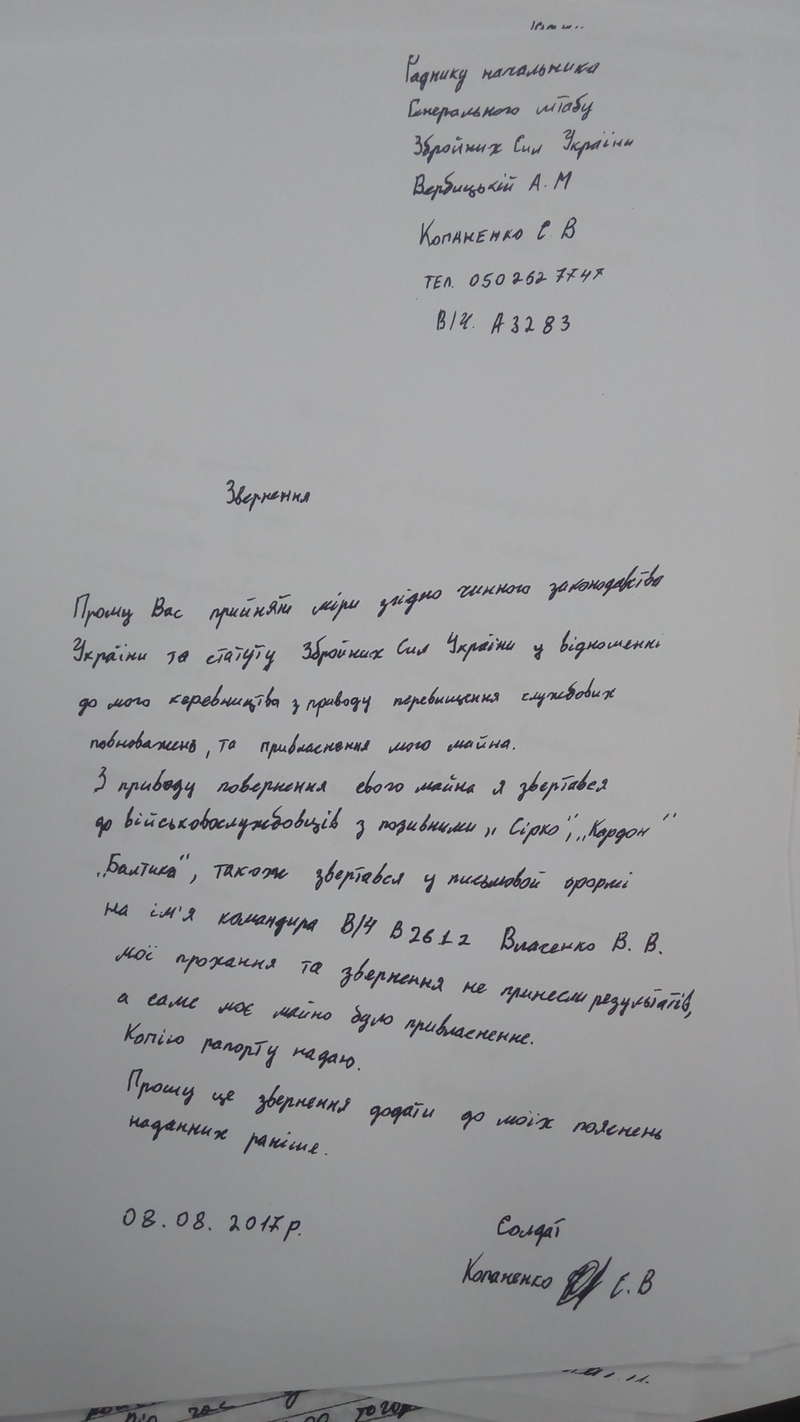 Раднику начальника
Генерального штабу
Збройних Сил України
Вербицькій А. М
Копаненко Є В
тел. 050 262 7747
В/Ч. А3283
Звернення
Прошу Вас прийняти міри згідно чинного законодавства
України та статуту Збройних Сил України у відношенні
до мого керевництва з приводу перевищення службових
повноважень, та привласнення мого майна.
З приводу повернення свого майна я звертався
до військовослужбовців з позивними „Сірко", „Кордон"
„Балтика", також звертався у письмовой формі
на ім'я командира В/Ч В2612 Власенко В. В.
мої прохання та звернення не принесли результатів,
а саме моє майно було привласненне.
Копію рапорту надаю.
Прошу це звернення додати до моїх пояснень
наданних раніше.
08.08.2017р.
Солдат
Копаненко Є.В